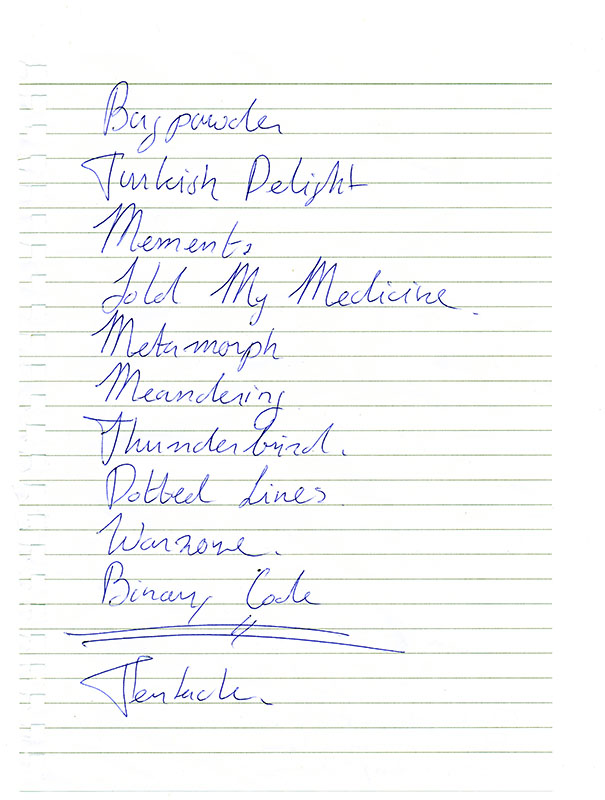 Bagpowder
Turkish Delight
Memento
Sold My Medicine.
Metamorph
Meandering
Thunderbird.
Dotted Lines
Warzone.
Binary Code
Tentacle.